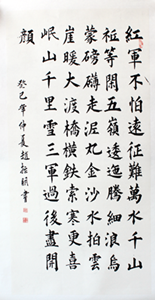 紅軍不怕遠征難萬水千山
祗等閑五嶺逶迤騰細浪烏
蒙磅礴走泥丸金沙水拍雲
崖暖大渡橋橫鉄索寒更喜
岷山千里雪三軍過後盡開
顏
癸巳年仲夏趙書